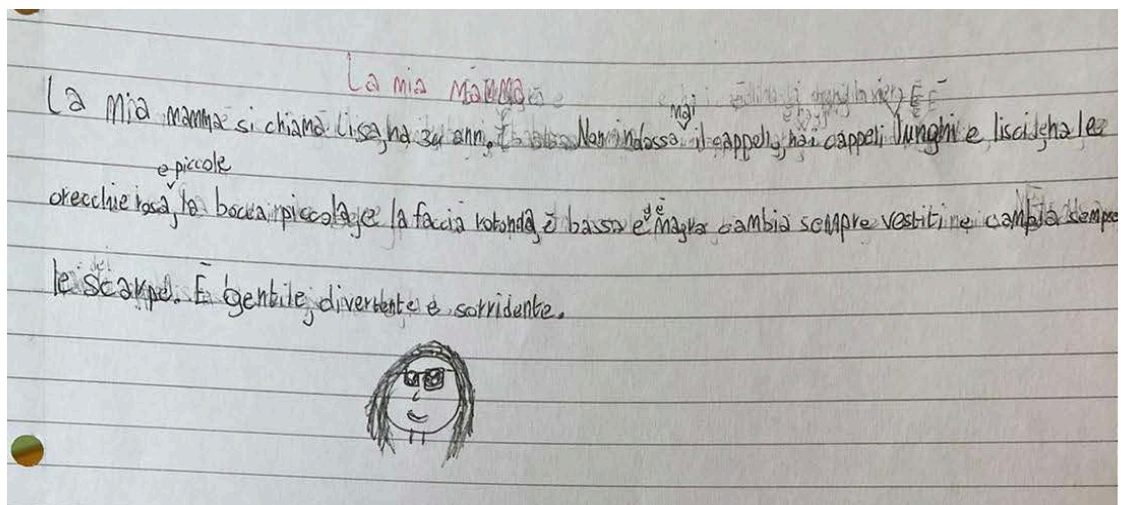 La mia mamma
La mia mamma si chiama Lisa, ha 34 anni. Non indossa mai il cappello, ha i cappeli lunghi e lisci, ha le
orecchie rosa e piccole, la bocca piccola, e la faccia rotonda, è bassa ed è magra cambia sempre vestiti ne cambia sempre
le scarpe. È gentile, divertente e sorridente.